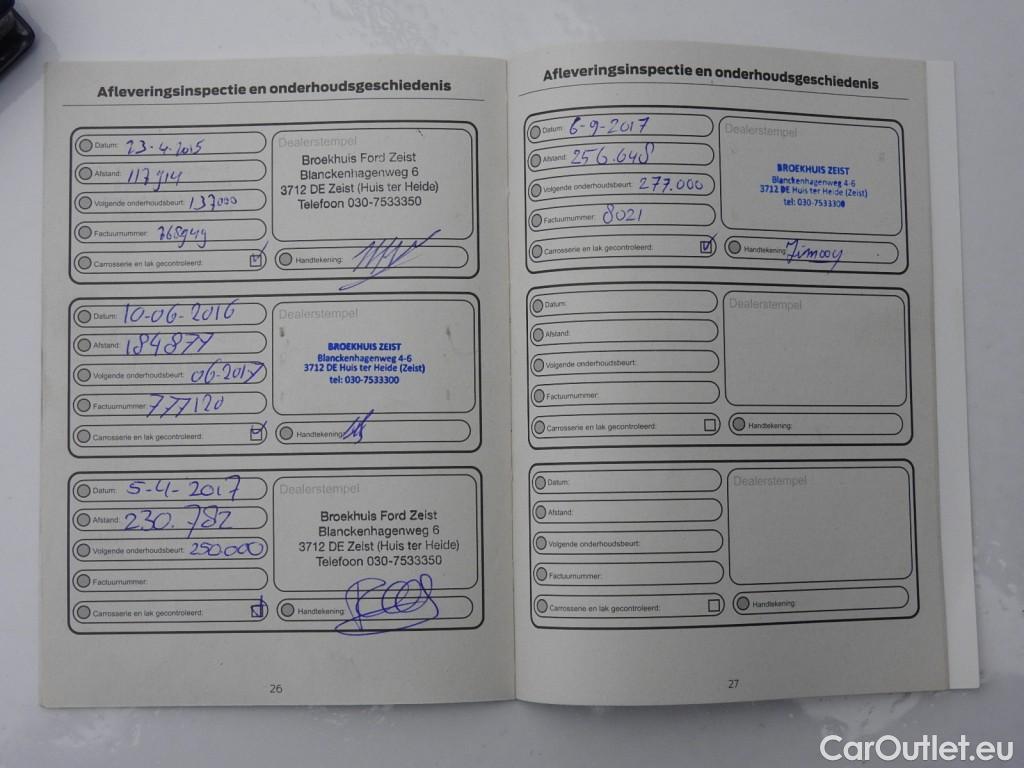 Afleveringsinspectie en onderhoudsgeschiedenis
Datum: 23-4-2015
Afstand: 117914
Volgende onderhoudsbeurt: 137000
Factuurnummer: 768949
Carrosserie en lak gecontroleerd:
Dealerstempel
Broekhuis Ford Zeist
Blanckenhagenweg 6
3712 DE Zeist (Huis ter Heide)
Telefoon 030-7533350
Handtekening:
Datum: 10-06-2016
Afstand: 184877
Volgende onderhoudsbeurt: 06-2017
Factuurnummer: 777120
Carrosserie en lak gecontroleerd:
Dealerstempel
BROEKHUIS ZEIST
Blanckenhagenweg 4-6
3712 DE Huis ter Heide (Zeist)
tel: 030-7533300
Handtekening:
Datum: 5-4-2017
Afstand: 230.782
Volgende onderhoudsbeurt: 250.000
Factuurnummer:
Carrosserie en lak gecontroleerd:
Dealerstempel
Broekhuis Ford Zeist
Blanckenhagenweg 6
3712 DE Zeist (Huis ter Heide)
Telefoon 030-7533350
Handtekening:
26
Afleveringsinspectie en onderhoudsgeschiedenis
Datum: 6-9-2017
Afstand: 256.648
Volgende onderhoudsbeurt: 277.000
Factuurnummer: 8021
Carrosserie en lak gecontroleerd:
Dealerstempel
BROEKHUIS ZEIST
Blanckenhagenweg 4-6
3712 DE Huis ter Heide (Zeist)
tel: 030-7533300
Handtekening:
Datum:
Afstand:
Volgende onderhoudsbeurt:
Factuurnummer:
Carrosserie en lak gecontroleerd:
Dealerstempel
Handtekening:
Datum:
Afstand:
Volgende onderhoudsbeurt:
Factuurnummer:
Carrosserie en lak gecontroleerd:
Dealerstempel
Handtekening:
27
CarOutlet.eu